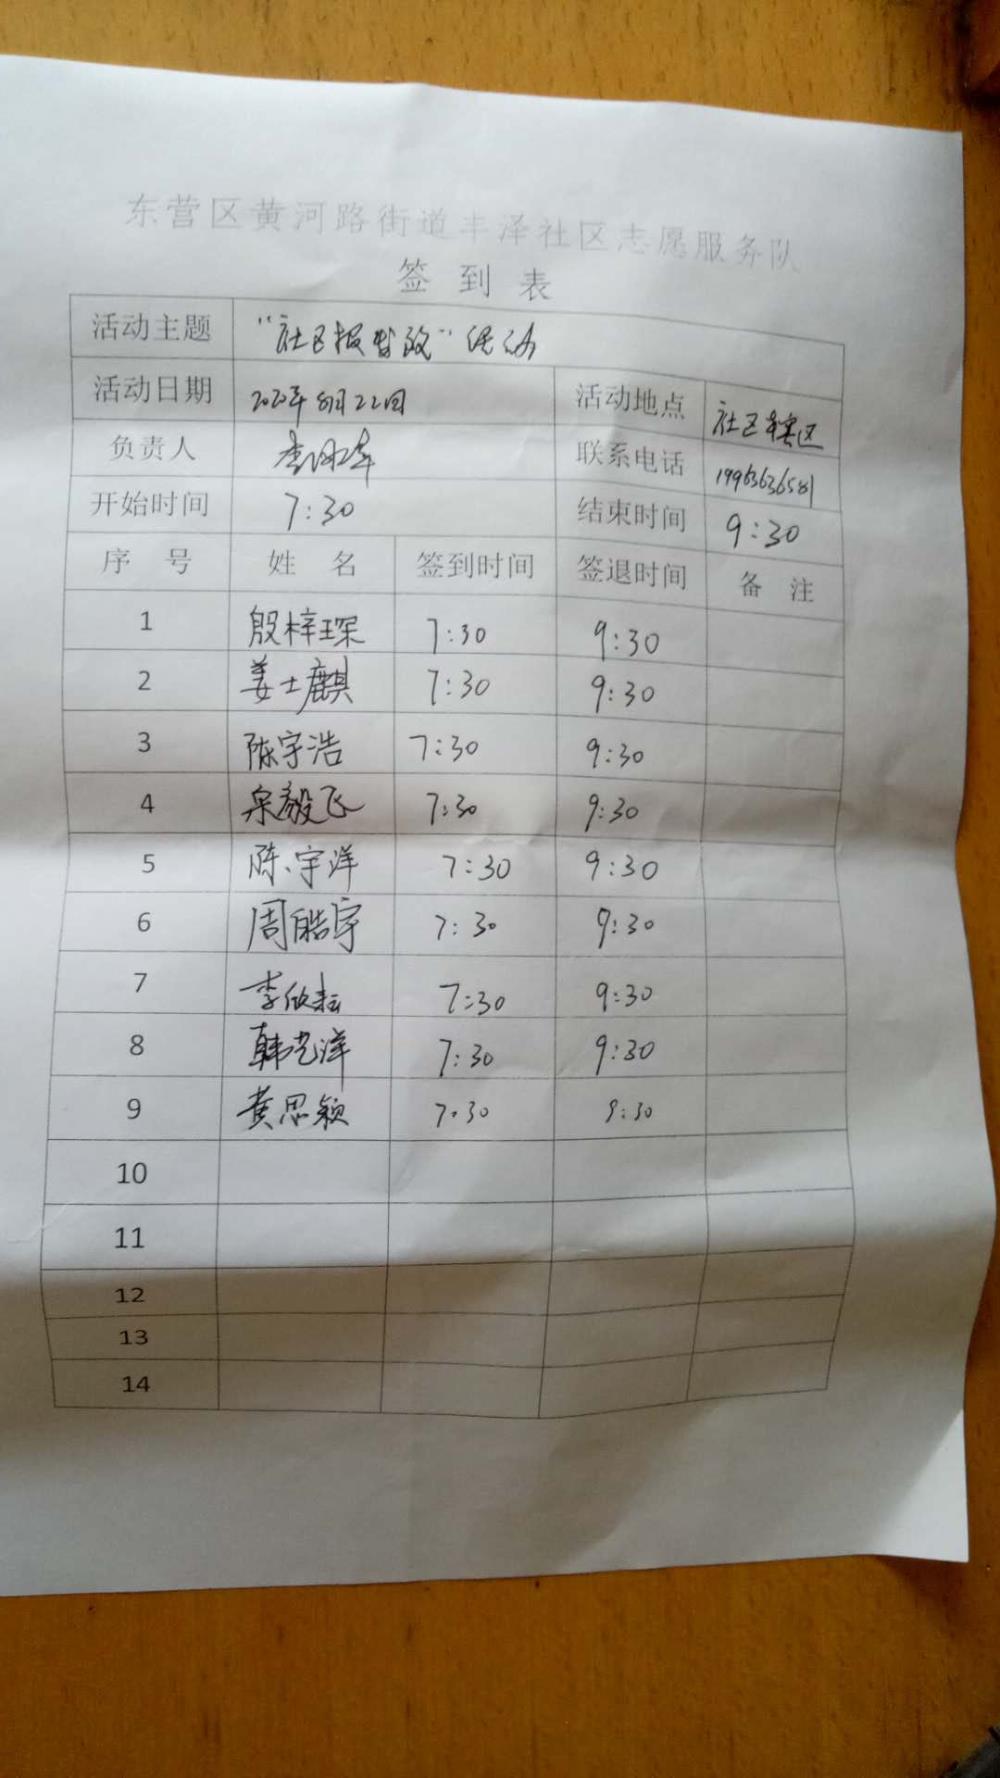 东营区黄河路街道丰泽社区志愿服务队
签 到 表
活动主题 “社区报到” 活动
活动日期 2020年8月22日 活动地点 社区辖区
负责人 联系电话 19963636581
开始时间 7:30 结束时间 9:30
序 号 姓 名 签到时间 签退时间 备 注
1 殷梓琛 7:30 9:30
2 姜士麒 7:30 9:30
3 陈宇浩 7:30 9:30
4 毅飞 7:30 9:30
5 陈宇洋 7:30 9:30
6 周皓宇 7:30 9:30
7 李欣耘 7:30 9:30
8 韩艺洋 7:30 9:30
9 黄思颖 7:30 9:30
10
11
12
13
14